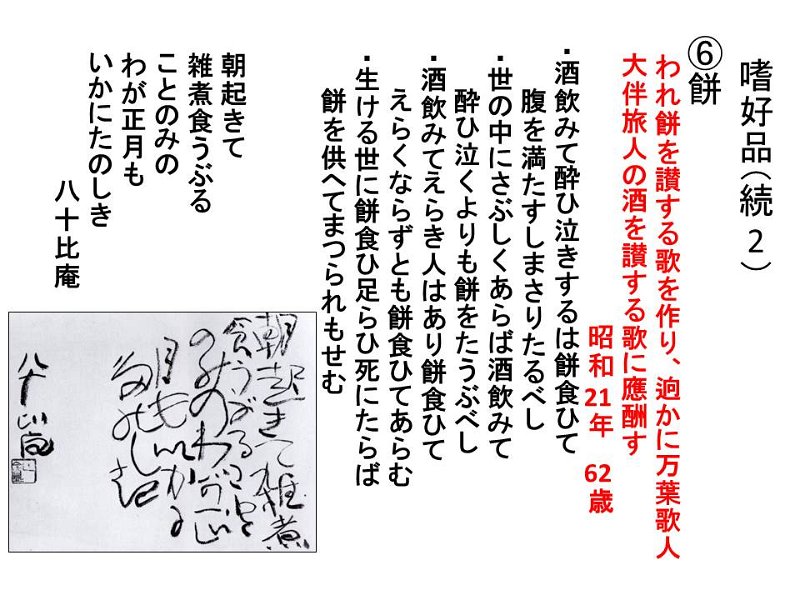 嗜好品（続２）
⑥餅
われ餅を讃する歌を作り、逈かに万葉歌人
大伴旅人の酒を讃する歌に應酬す
昭和21年　62歳
・酒飲みて酔ひ泣きするは餅食ひて
腹を満たすしまさりたるべし
・世の中にさぶしくあらば酒飲みて
酔ひ泣くよりも餅をたうぶべし
・酒飲みてえらき人はあり餅食ひて
えらくならずとも餅食ひてあらむ
・生ける世に餅食ひ足らひ死にたらば
餅を供へてまつられもせむ
朝起きて
雑煮食うぶる
ことのみの
わが正月も
いかにたのしき
八十比庵
朝起きて雑煮
食うぶるこ
とのみのわが正
月もいかに
たのしき
八十比庵